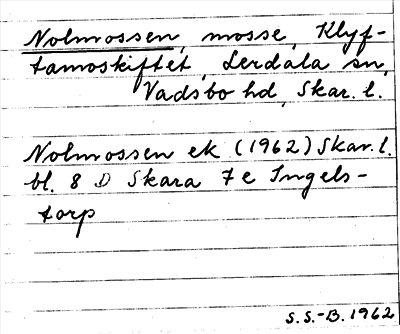 Nolmossen, mosse, Klyf-
tamoskiftet, Lerdala sn,
Vadsbo hd, Skar. l.
Nolmossen ek (1962) Skar. l.
bl. 8 D Skara 7 e Ingels-
torp
S.S.-B. 1962